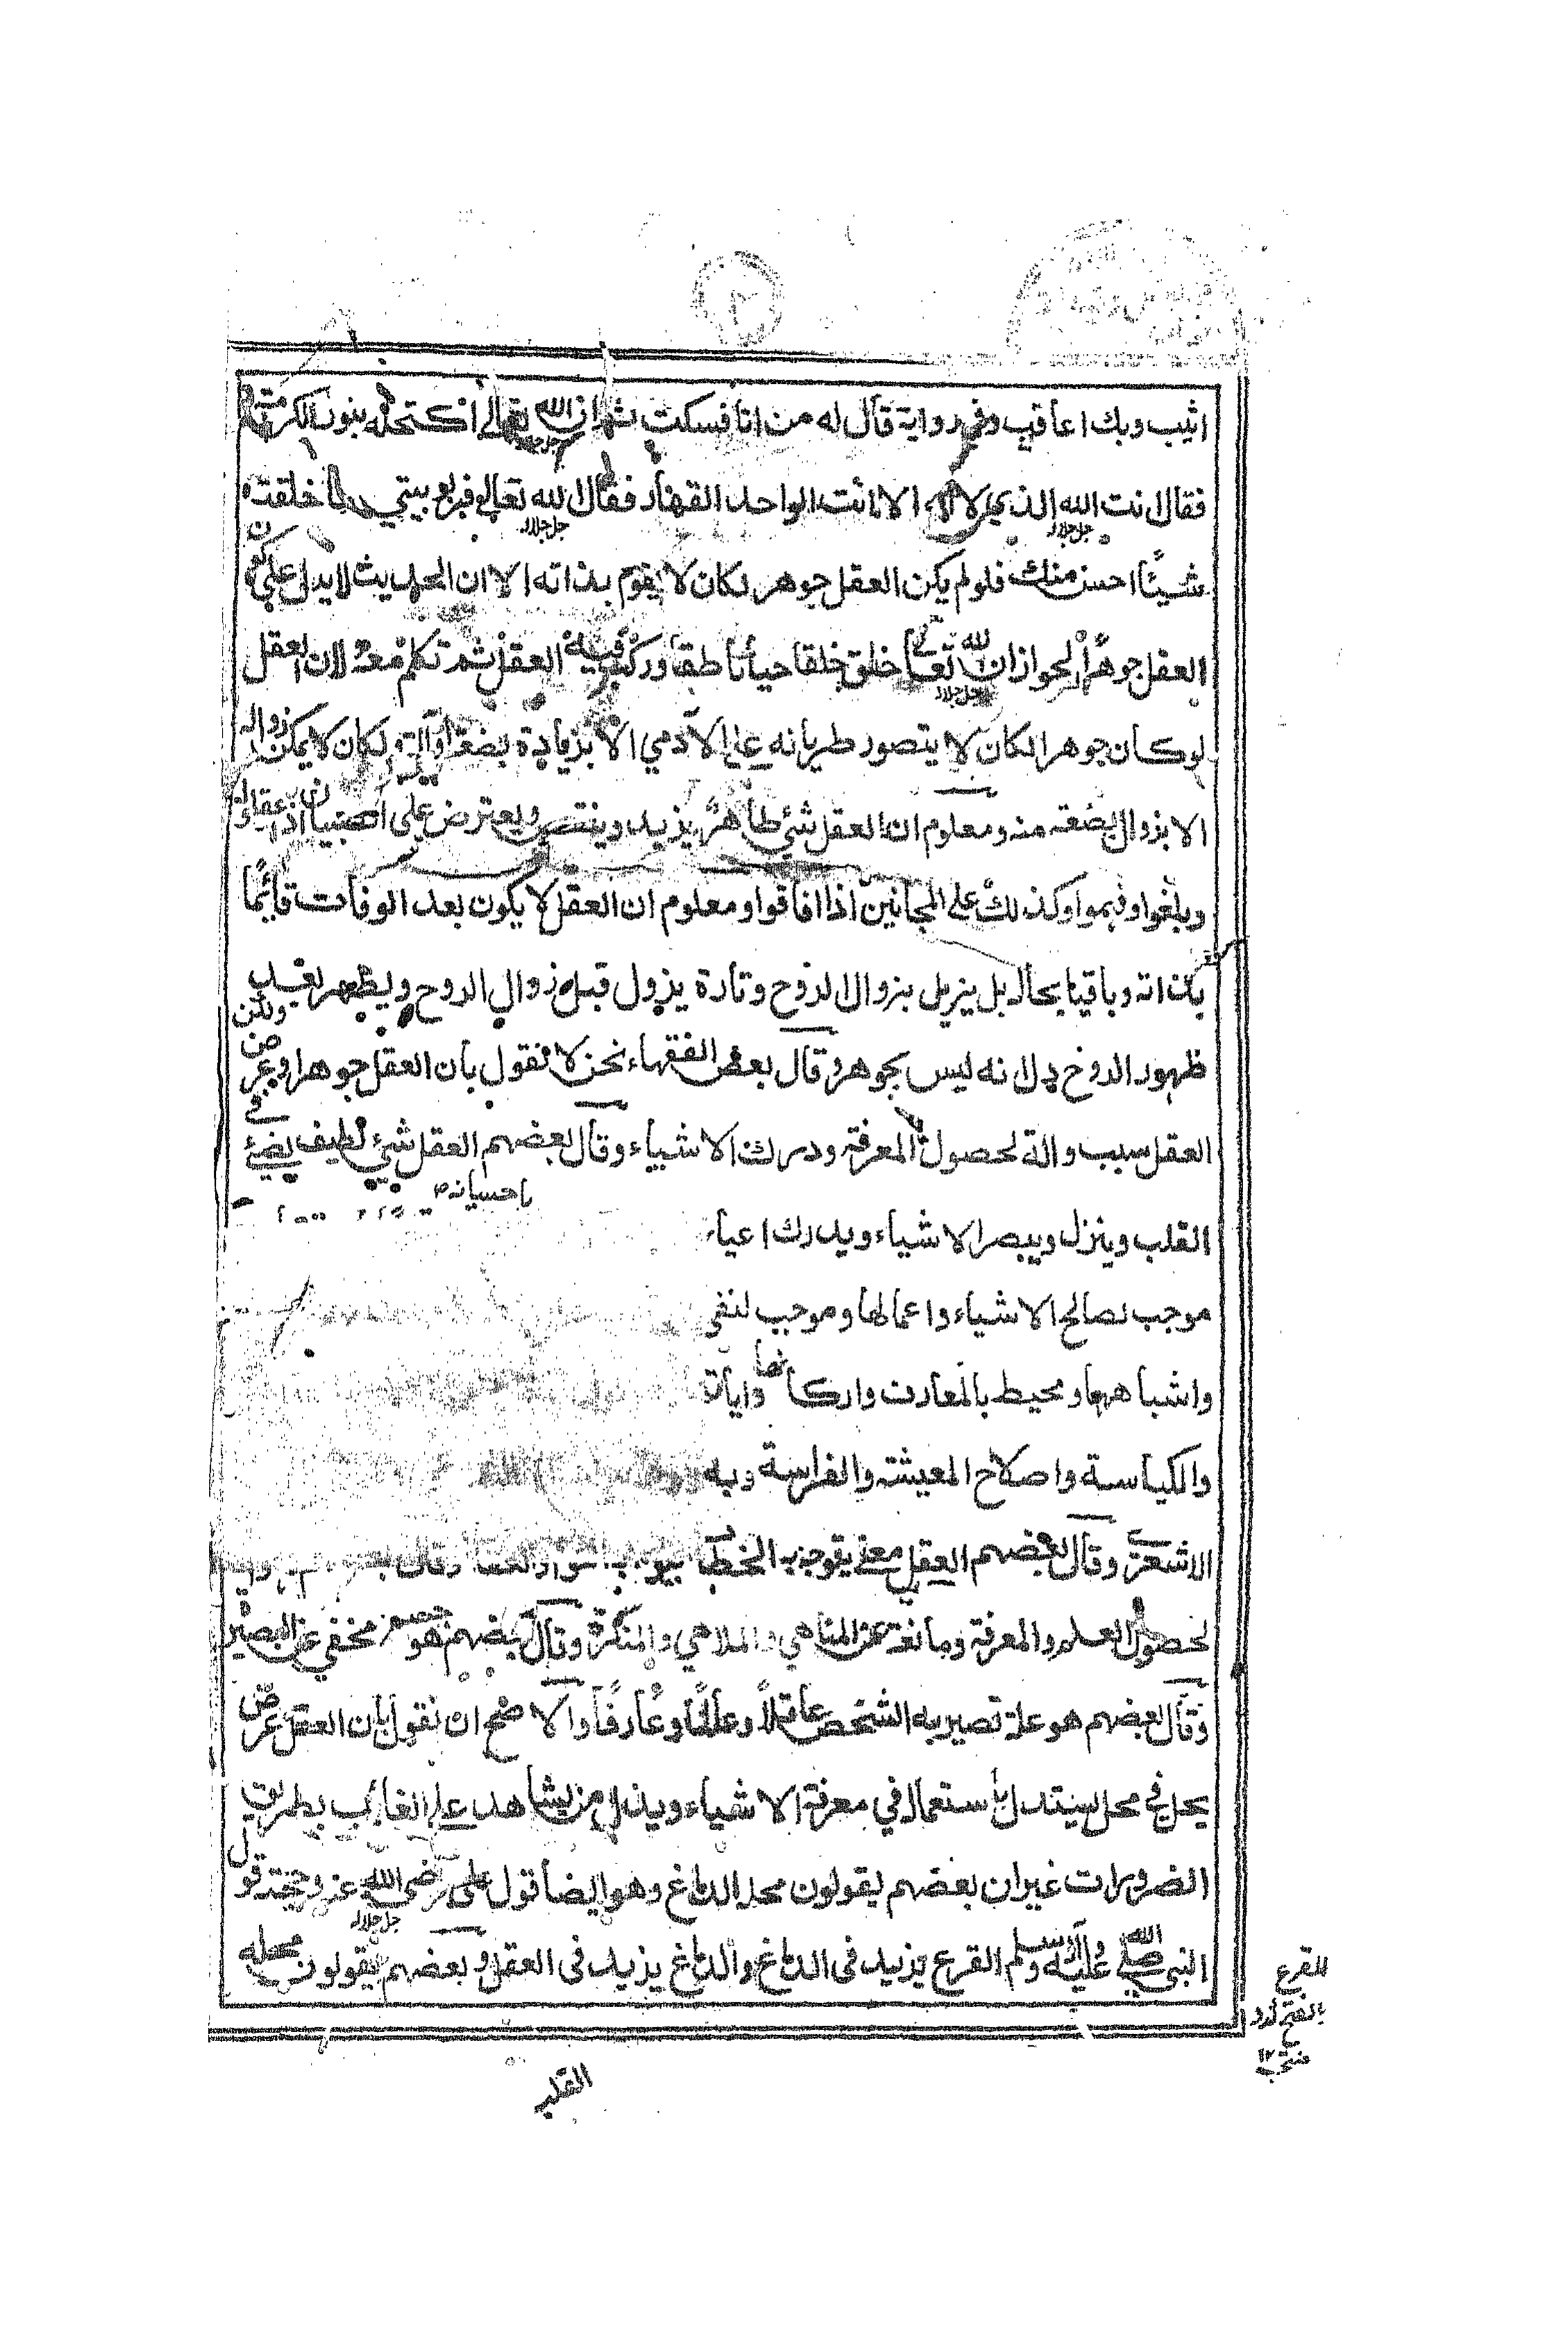 اثيب وبك اعاقب وفي رواية قال له من انا فسكت ثم ان الله تعالى اكتحله بنور الكرمة
فقال انت الله الذي لا اله الا انت الواحد القهار فقال الله تعالى فبربوبيتي ما خلقت
جل جلاله جل جلاله
شيئا احسن منك فلو لم يكن العقل جوهر لكان لا يقوم بذاته الا ان الحديث لا يدل على كون
العقل جوهرا لجواز ان الله تعالى خلق خلقا حيا ناطقا وركب فيه العقل ثم تكلم معه ولان العقل
جل جلاله
لو كان جوهرا لكان لا يتصور طريانه على الآدمي الا بزيادة بضعة وآلة ولكان لا يمكن زواله
الا بزوال بضعة منه ومعلوم ان العقل شئ طاهر يزيد وينتقص ويعترض على الصبيان اذا عقلوا
وبلغوا وفهموا وكذلك على المجانين اذا افاقوا ومعلوم ان العقل لا يكون بعد الوفات قائما
بذاته وباقيا بحاله بل يزيل بزوال الروح وتارة يزول قبل زوال الروح ويظهر بعد
ظهور الروح دل انه ليس بجوهر وقال بعض الفقهاء نحن لا نقول بان العقل جوهر او عرض ولكن
العقل سبب والة لحصول المعرفة ودرك الاشياء وقال بعضهم العقل شئ لطيف يضئ في
القلب وينزل ويبصر الاشياء ويدرك اعيا
موجب لصالح الاشياء واعمالها وموجب لنفي
واشباهها ومحيط بالمعارف واركانها واياة
والكياسة واصلاح المعيشة والفراسة وبه
الاشعري وقال بعضهم العقل معنى يتوجه به الخطاب
لحصول العلم والمعرفة ومانعة عن المناهي والملاهي والمنكرة وقال بعضهم هو مخفي عن البصير
وقال بعضهم هو علة تصير به الشخص عاقلا وعالما وعارفا والاصح ان نقول بان العقل عرض
يحل في محل يستدل باستعماله في معرفة الاشياء ويدل من يشاهد على الغائب بطريق
الضرورات غير ان بعضهم يقولون محله الدماغ وهو ايضا قول على رضى الله عنه وحجته قول
جل جلاله
النبى صلى الله عليه وآله وسلم القرع يزيد فى الدماغ والدماغ يزيد فى العقل وبعضهم يقولون محله
القلب
القرع
بالفتح كدو
منتخب ١٢